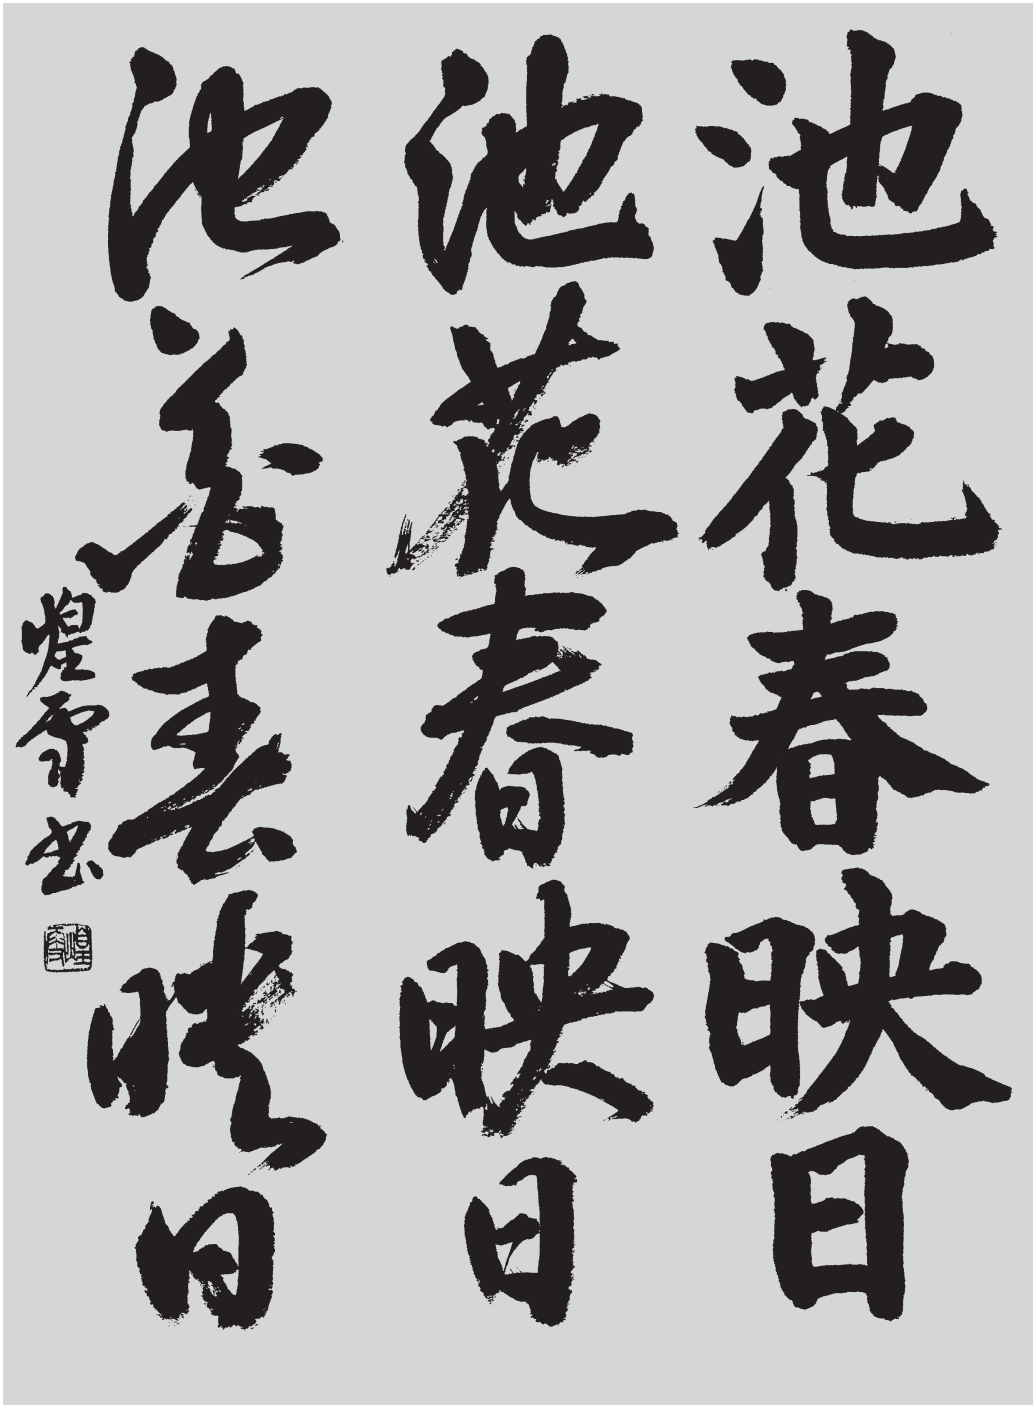 池花春映日
池花春映日
池花春映日
煌雪書
煌雪